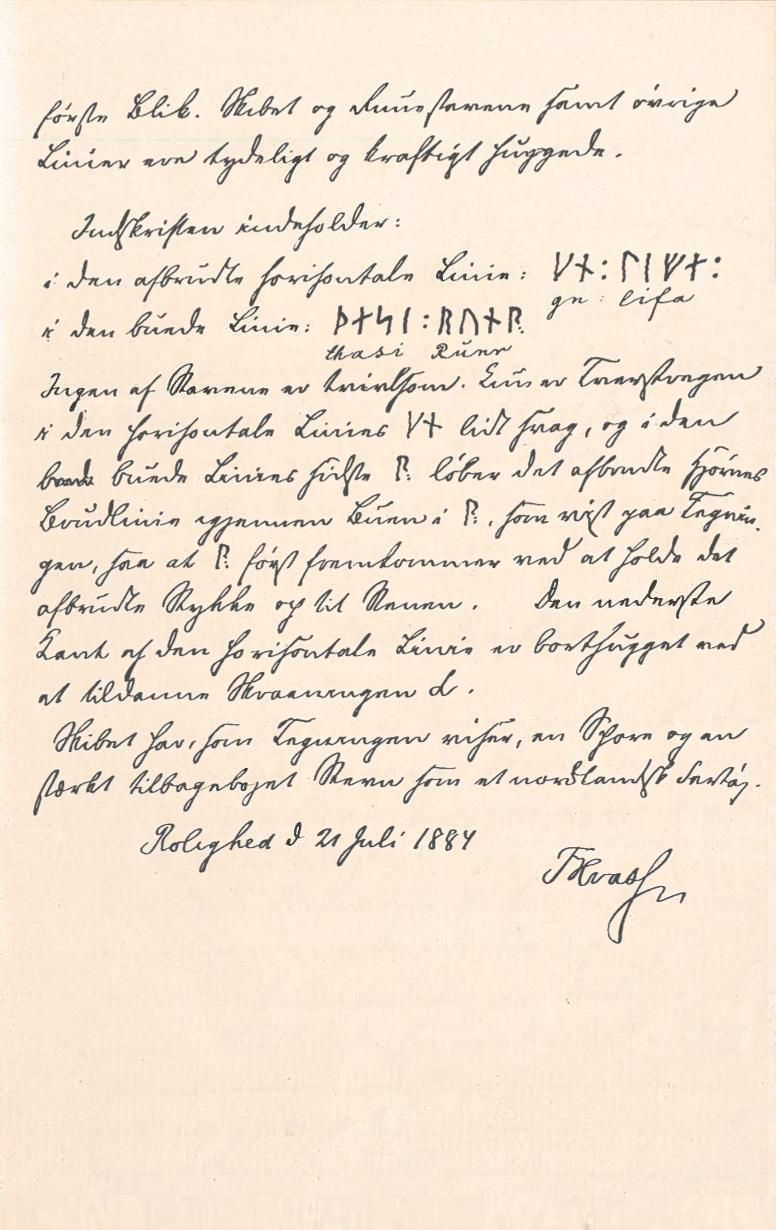 første Blik. Skibet og Runestavene samt øvrige
Linier ere tydeligt og kraftigt huggede.
Indskriften indeholder:
i den afbrudte horisontale Linie: ᚴᚾ:ᛚᛁᚠᚾ:
ge : lifa
i den buede Linie: ᚦᚾᛋᛁ:ᚱᚢᚾᚱ
thasi Runr
Ingen af Stavene er tvivlsom. Kun er Tverstregen
i den horisontale Linies ᚴᚾ lidt svag, og i den
buede Linies sidste ᚱ. løber det afbrudte Hjørnes
Brudlinie igjennem Buen i ᚱ., som vist paa Tegnin-
gen, saa at ᚱ. først fremkommer ved at holde det
afbrudte Stykke op til Stenen. Den nederste
Kant af den horisontale Linie er borthugget ved
at tildanne Skraaningen d.
Skibet har, som Tegningen viser, en Spore og en
stærkt tilbagebøjet Stevn som et nordlandsk Fartøj.
Rolighed d 21 Juli 1884